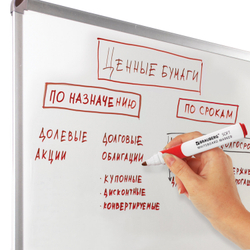 ЦЕННЫЕ БУМАГИ
ПО НАЗНАЧЕНИЮ
ПО СРОКАМ
ДОЛЕВЫЕ
АКЦИИ
ДОЛГОВЫЕ
ОБЛИГАЦИИ
· КУПОННЫЕ
· ДИСКОНТНЫЕ
· КОНВЕРТИРУЕМЫЕ
BRAUBERG SOFT